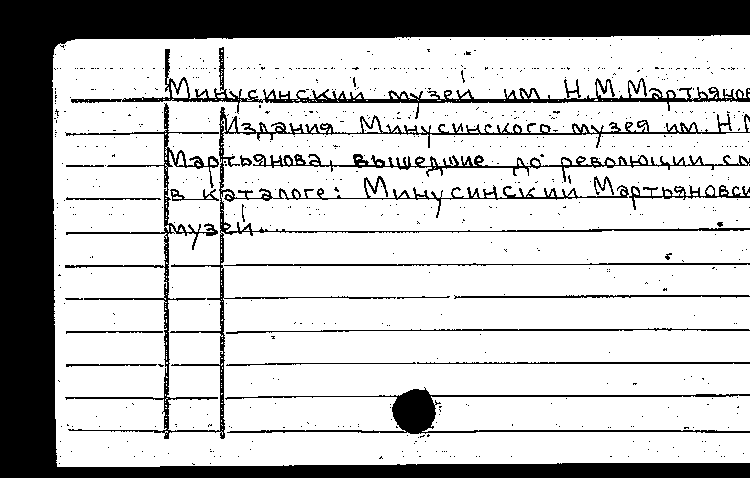 Минусинский музей им. Н.М.Мартьянов
Издания Минусинского музея им. Н.М
Мартьянова, вышедшие до революции, см
в каталоге: Минусинский Мартьяновски
музей.